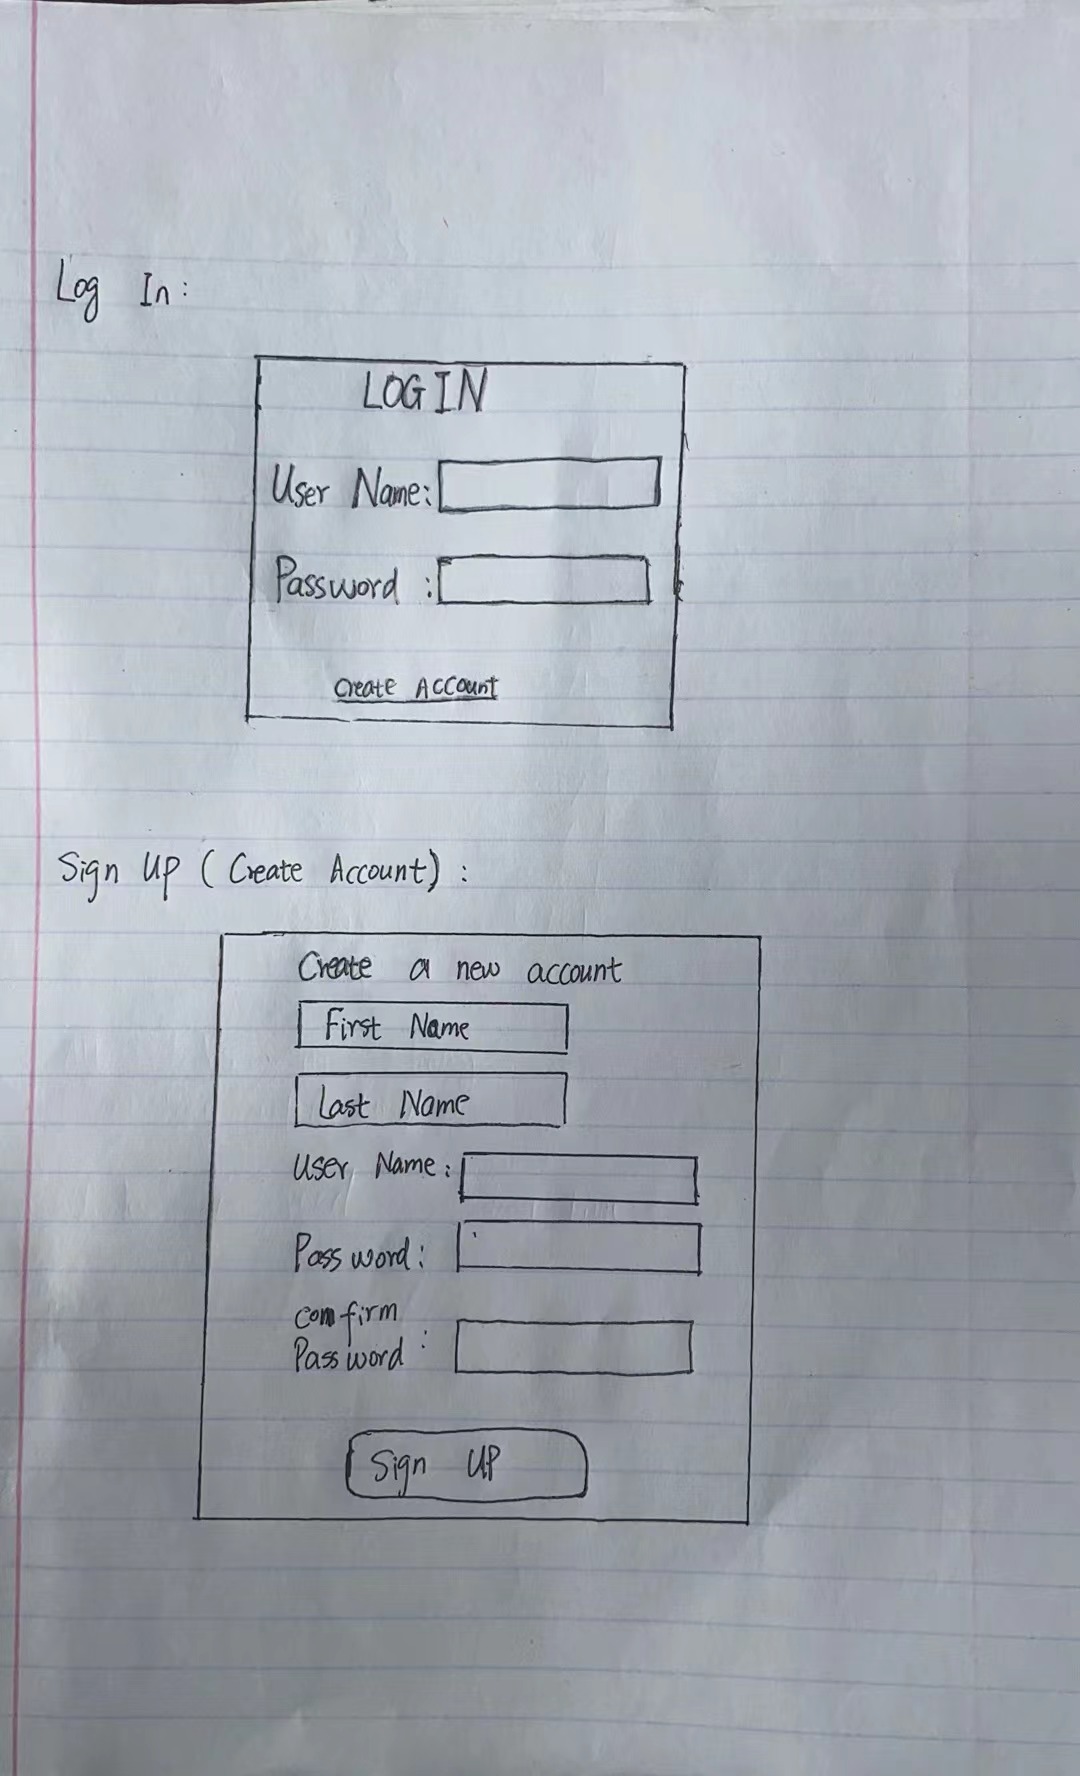 Log In:
LOGIN
User Name:
Password :
Create Account
Sign Up (Create Account) :
Create a new account
First Name
Last Name
User Name:
Password:
comfirm
Password :
Sign UP